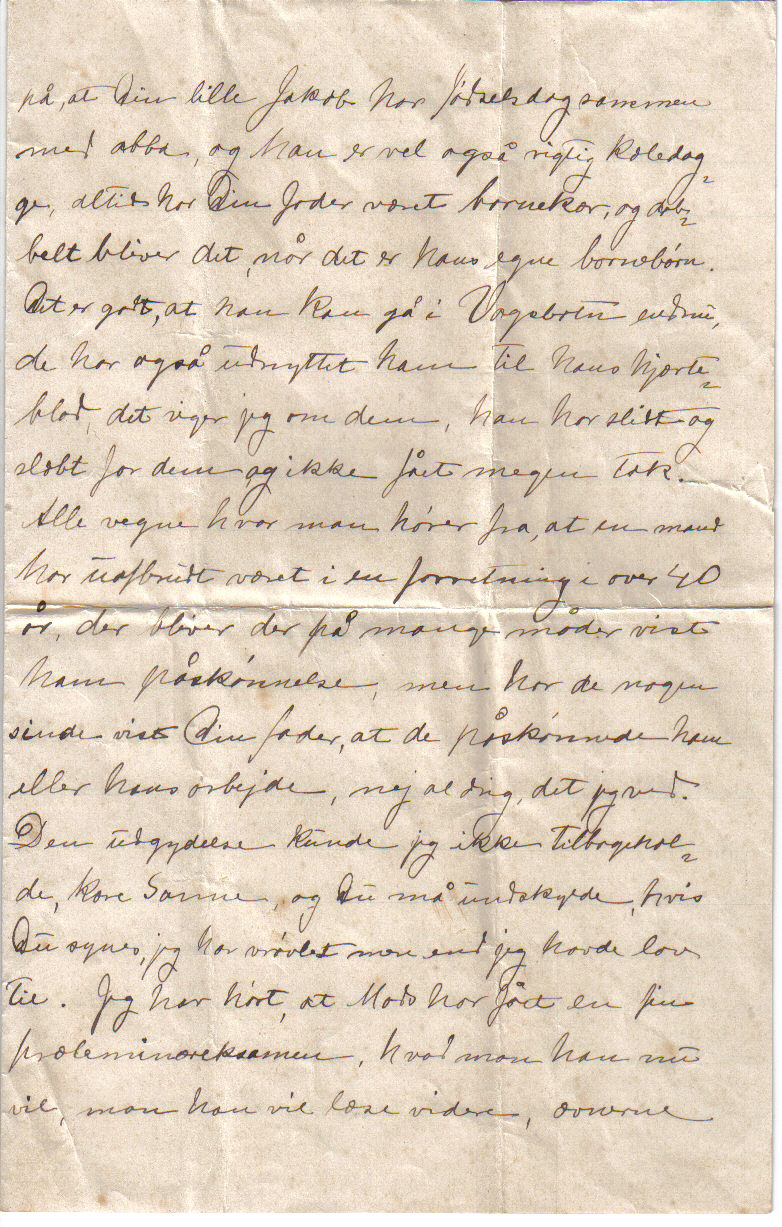 på, at Din lille Jakob har fødselsdag sammen
med abba, og han er vel også rigtig kæledæg
ge, altid har Din fader været børnekær, og dob=
belt bliver det, når det er hans egne børnebørn.
Det er godt, at han kan gå i Vågsbotn endnu,
de har også udnyttet ham til hans hjærte=
blod, det siger jeg om dem, han har slidt og
slæbt for dem og ikke fået megen tak.
Alle vegne hvor man hører fra, at en mand
har uafbrudt været i en forretning i over 40
år, der bliver der på mange måder vist
ham påskønnelse, men har de nogen
sinde vist Din fader, at de påskønnede ham
eller hans arbejde, nej aldrig, det jeg ved.
Den udgydelse kunde jeg ikke tilbagehol=
de, kære Sanne, og Du må undskylde, hvis
Du synes, jeg har vrøvlet mere end jeg havde lov
til. Jeg har hørt, at Mads har fået en fin
præleminæreksamen, hvad mon han nu
vil, mon han vil læse videre, ævnerne